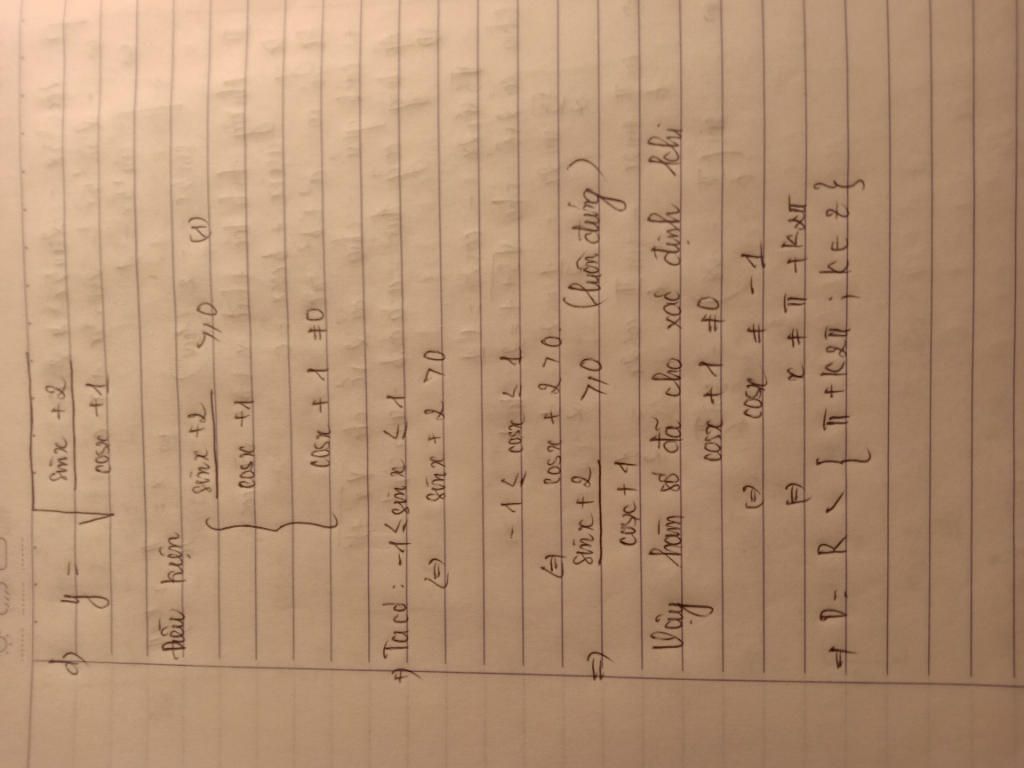 d) y = √((sinx + 2)/(cosx + 1))
Điều kiện
{ (sinx + 2)/(cosx + 1) ⩾ 0 (1)
cosx + 1 ≠ 0
+) Ta có: -1 ≤ sinx ≤ 1
(=) sinx + 2 > 0
-1 ≤ cosx ≤ 1
(=) cosx + 2 > 0
=) (sinx + 2)/(cosx + 1) ⩾ 0 (luôn đúng)
Vậy hàm số đã cho xác định khi
cosx + 1 ≠ 0
(=) cosx ≠ -1
(=) x ≠ π + k2π
=) D = R \ { π + k2π ; k ∈ z }